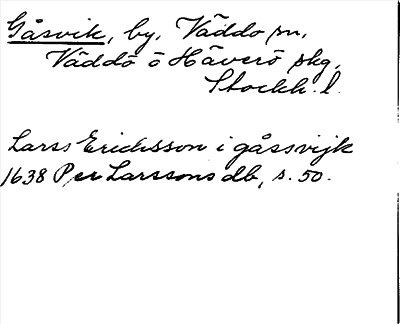 Gåsvik, by, Väddo sn,
Väddö o Häverö skg,
Stockh. l.
Larss Erichsson i gåssvijk
1638 Per Larssons db, s. 50.